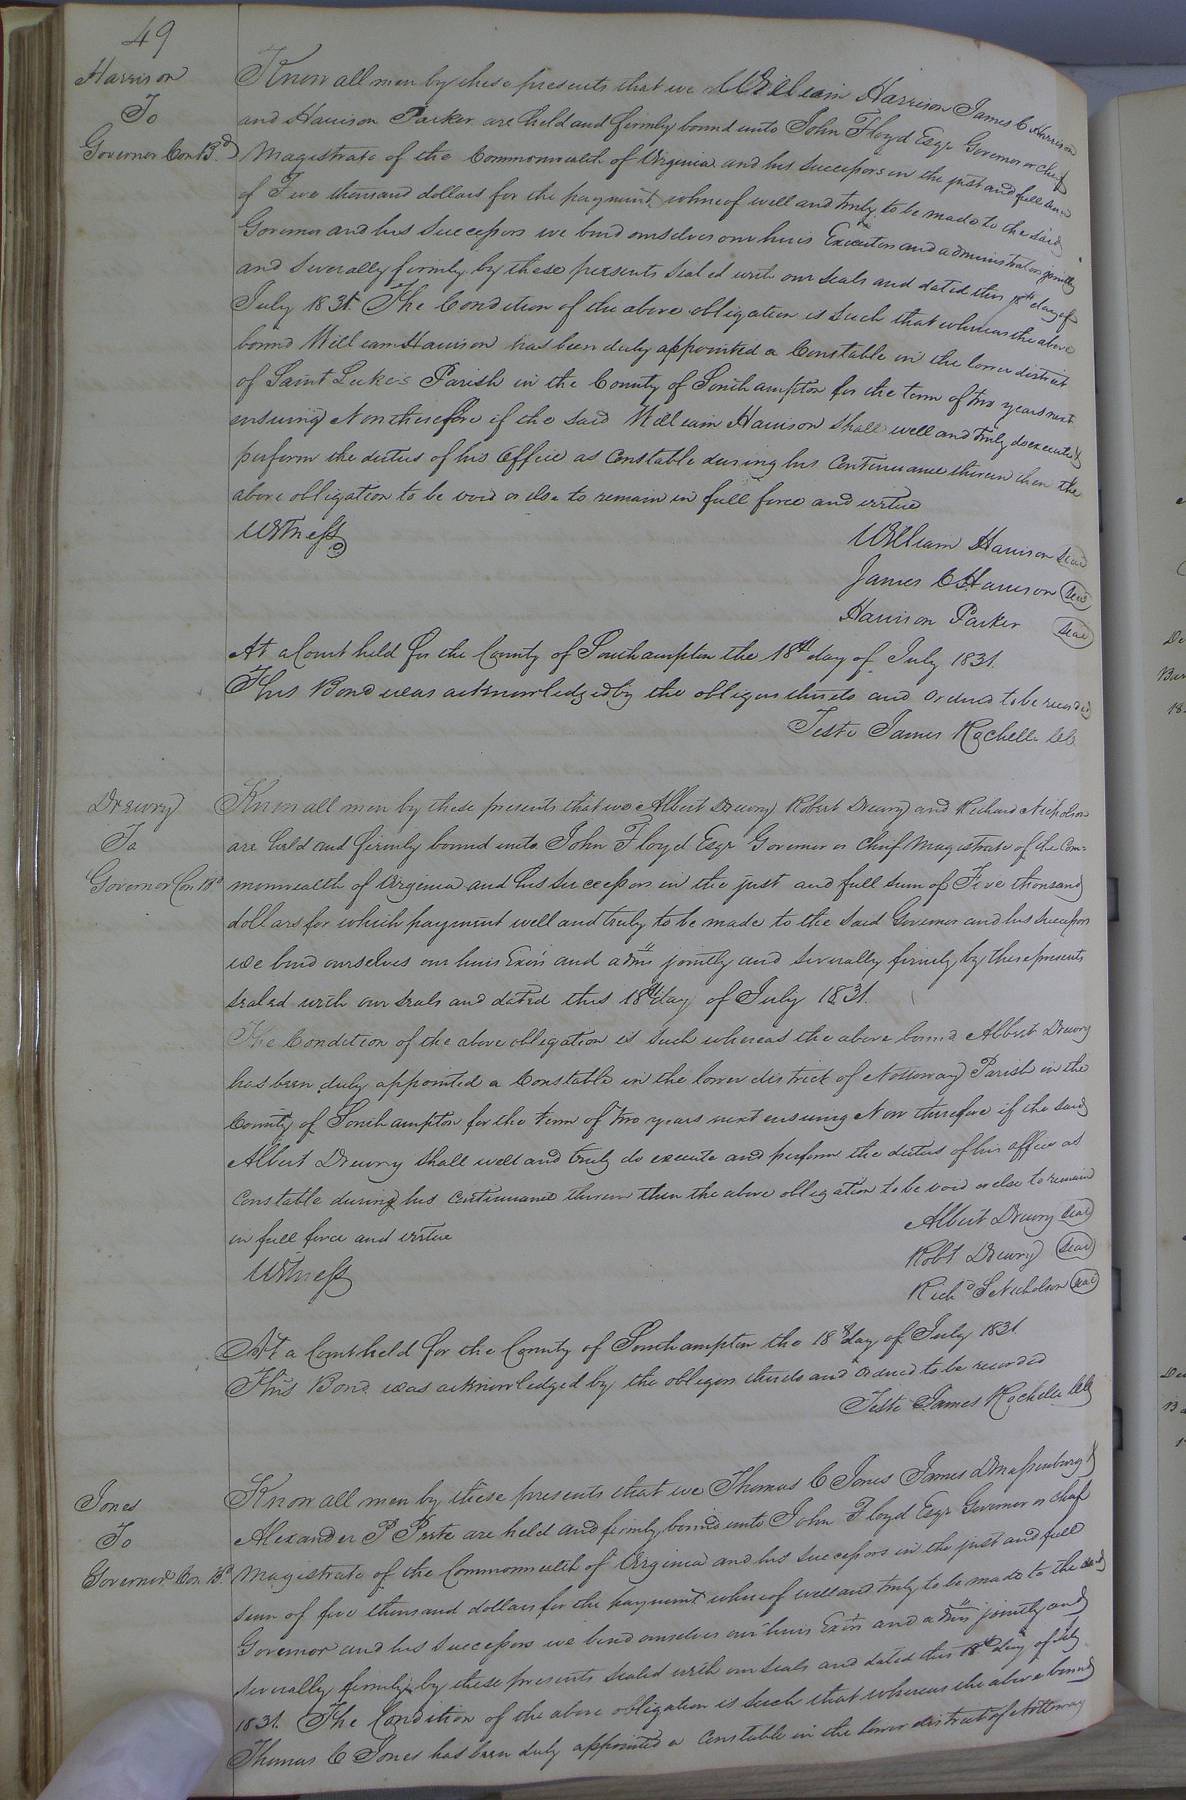 49
Harrison
To
Governor Con Bd
Know all men by these presents that we William Harrison James C Harrison
and Harrison Parker are held and firmly bound unto John Floyd Esqr Governor or chief
Magistrate of the Commonwealth of Virginia and his successors in the just and full sum
of Five thousand dollars for the payment whereof well and truly to be made to the said
Governor and his Successors we bind ourselves our heirs Executors and administrators jointly
and severally firmly by these presents sealed with our seals and dated this 18th day of
July 1831. The Condition of the above obligation is such that whereas the above
bound William Harrison has been duly appointed a Constable in the lower district
of Saint Luke's Parish in the County of Southampton for the term of two years next
ensuing Now therefore if the said William Harrison shall well and truly do execute &
perform the duties of his Office as Constable during his Continuance therein then the
above obligation to be void or else to remain in full force and virtue
Witness
William Harrison Seal
James C Harrison Seal
Harrison Parker Seal
At a Court held for the County of Southampton the 18th day of July 1831.
This Bond was acknowledged by the obligors thereto and Ordered to be recorded
Teste James Rochelle Clk
Drewry
To
Governor Con Bd
Know all men by these presents that we Albert Drewry Robert Drewry and Richard Nicholson
are held and firmly bound unto John Floyd Esqr Governor or Chief Magistrate of the Com=
monwealth of Virginia and his successors in the just and full sum of Five thousand
dollars for which payment well and truly to be made to the said Governor and his successors
we bind ourselves our heirs Exors and adms jointly and severally firmly by these presents
sealed with our seals and dated this 18th day of July 1831.
The Condition of the above obligation is such whereas the above bound Albert Drewry
has been duly appointed a Constable in the lower district of Nottoway Parish in the
County of Southampton for the term of two years next ensuing Now therefore if the said
Albert Drewry shall well and truly do execute and perform the duties of his office as
Constable during his continuance therein then the above obligation to be void or else to remain
in full force and virtue
Witness
Albert Drewry Seal
Robt Drewry Seal
Richd S Nicholson Seal
At a Court held for the County of Southampton the 18th day of July 1831
This Bond was acknowledged by the obligors thereto and Ordered to be recorded
Teste James Rochelle Clk
Jones
To
Governor Con Bd
Know all men by these presents that we Thomas C Jones James D Massenburg &
Alexander P Peete are held and firmly bound unto John Floyd Esqr Governor or Chief
Magistrate of the Commonwealth of Virginia and his successors in the just and full
sum of five thousand dollars for the payment whereof well and truly to be made to the said
Governor and his successors we bind ourselves our heirs Exors and adms jointly and
severally firmly by these presents sealed with our seals and dated this 18th day of July
1831. The Condition of the above obligation is such that whereas the above bound
Thomas C Jones has been duly appointed a Constable in the lower district of Nottoway